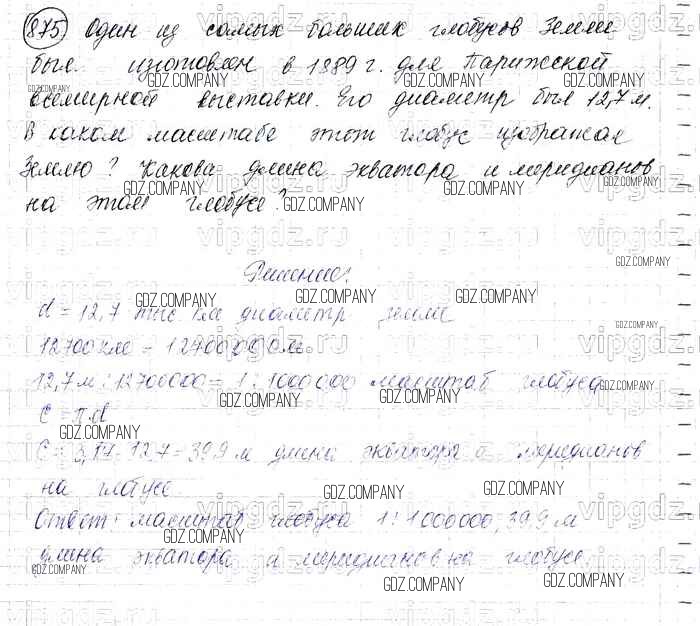 875 Один из самых больших глобусов Земли
был изготовлен в 1889 г. для Парижской
всемирной выставки. Его диаметр был 12,7 м.
В каком масштабе этот глобус изображал
Землю? Какова длина экватора и меридианов
на этом глобусе?
Решение:
d = 12,7 тыс км диаметр земли
12700 км = 12700000 м.
12,7 м : 12700000 = 1 : 1000000 масштаб глобуса
C = πd
C = 3,14 · 12,7 = 39,9 м длина экватора и меридианов
на глобусе.
Ответ: масштаб глобуса 1 : 1000000, 39,9 м
длина экватора и меридианов на глобусе.
GDZ.COMPANY
vipgdz.ru